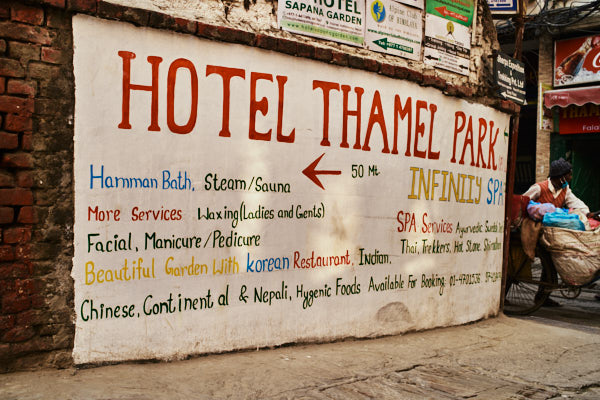 HOTEL
SAPANA GARDEN
HOTEL THAMEL PARK
50 Mt.
INFINITY SPA
Hamman Bath, Steam/Sauna
More Services Waxing(Ladies and Gents)
SPA Services Ayurvedic
Facial, Manicure/Pedicure
Thai, Trekkers, Hot Stone
Beautiful Garden With korean Restaurant, Indian,
Chinese, Continental & Nepali, Hygenic Foods Available For Booking: 01-4701536